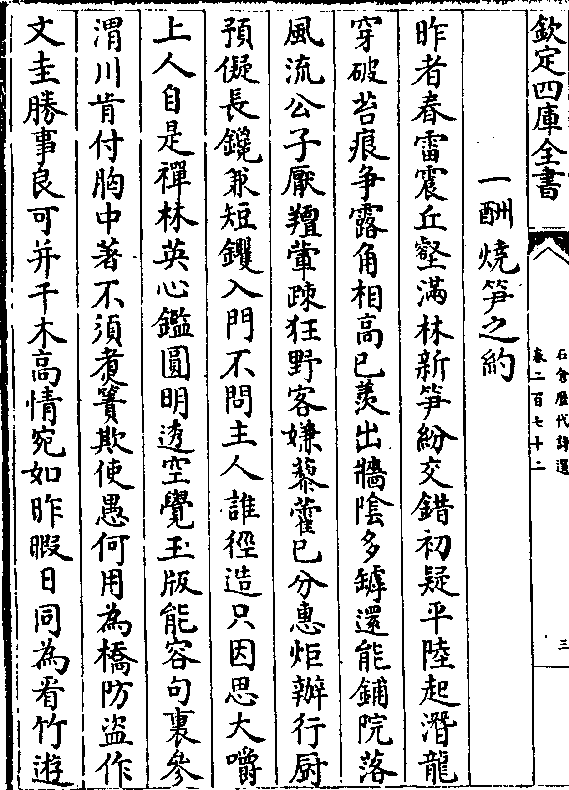 欽定四庫全書
石倉歴代詩選
卷二百七十二
三
一酬燒笋之約
昨者春雷震丘壑滿林新笋紛交錯初疑平陸起潛龍
穿破苔痕争露角相高已羨出牆陰多罅還能鋪院落
風流公子厭羶葷踈狂野客嫌藜藿已分惠炬辦行厨
預儗長鑱兼短钁入門不問主人誰徑造只因思大嚼
上人自是禪林英心鑑圓明透空覺玉版能容句裏參
渭川肯付胸中著不須煑簀欺使愚何用為橋防盗作
文圭勝事良可并千木高情宛如昨暇日同為看竹遊